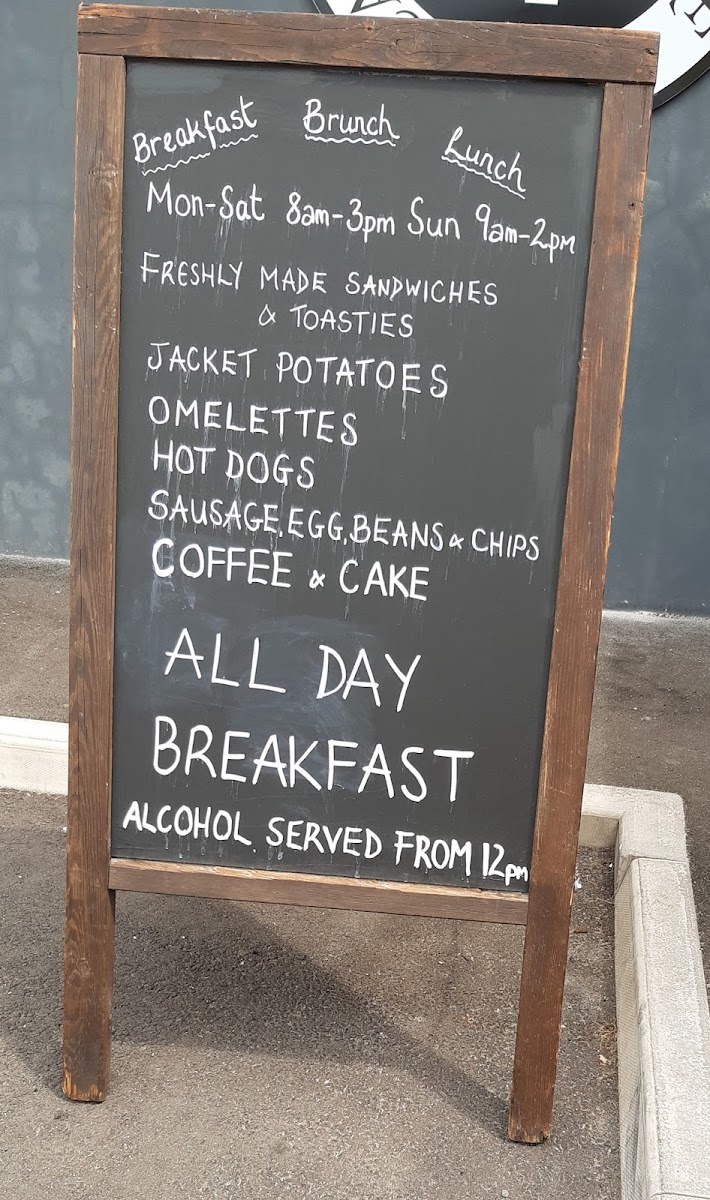 Breakfast Brunch Lunch
Mon-Sat 8am-3pm Sun 9am-2pm
FRESHLY MADE SANDWICHES
& TOASTIES
JACKET POTATOES
OMELETTES
HOT DOGS
SAUSAGE, EGG, BEANS & CHIPS
COFFEE & CAKE
ALL DAY
BREAKFAST
ALCOHOL SERVED FROM 12pm